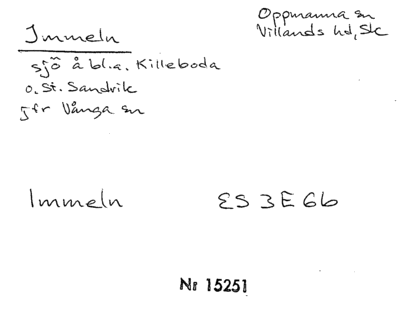 Immeln
Oppmanna sn
Villands hd, Sk
sjö å bl.a. Killeboda
o. St. Sandvik
jfr Vånga sn
Immeln ES 3E6b
Nr 15251